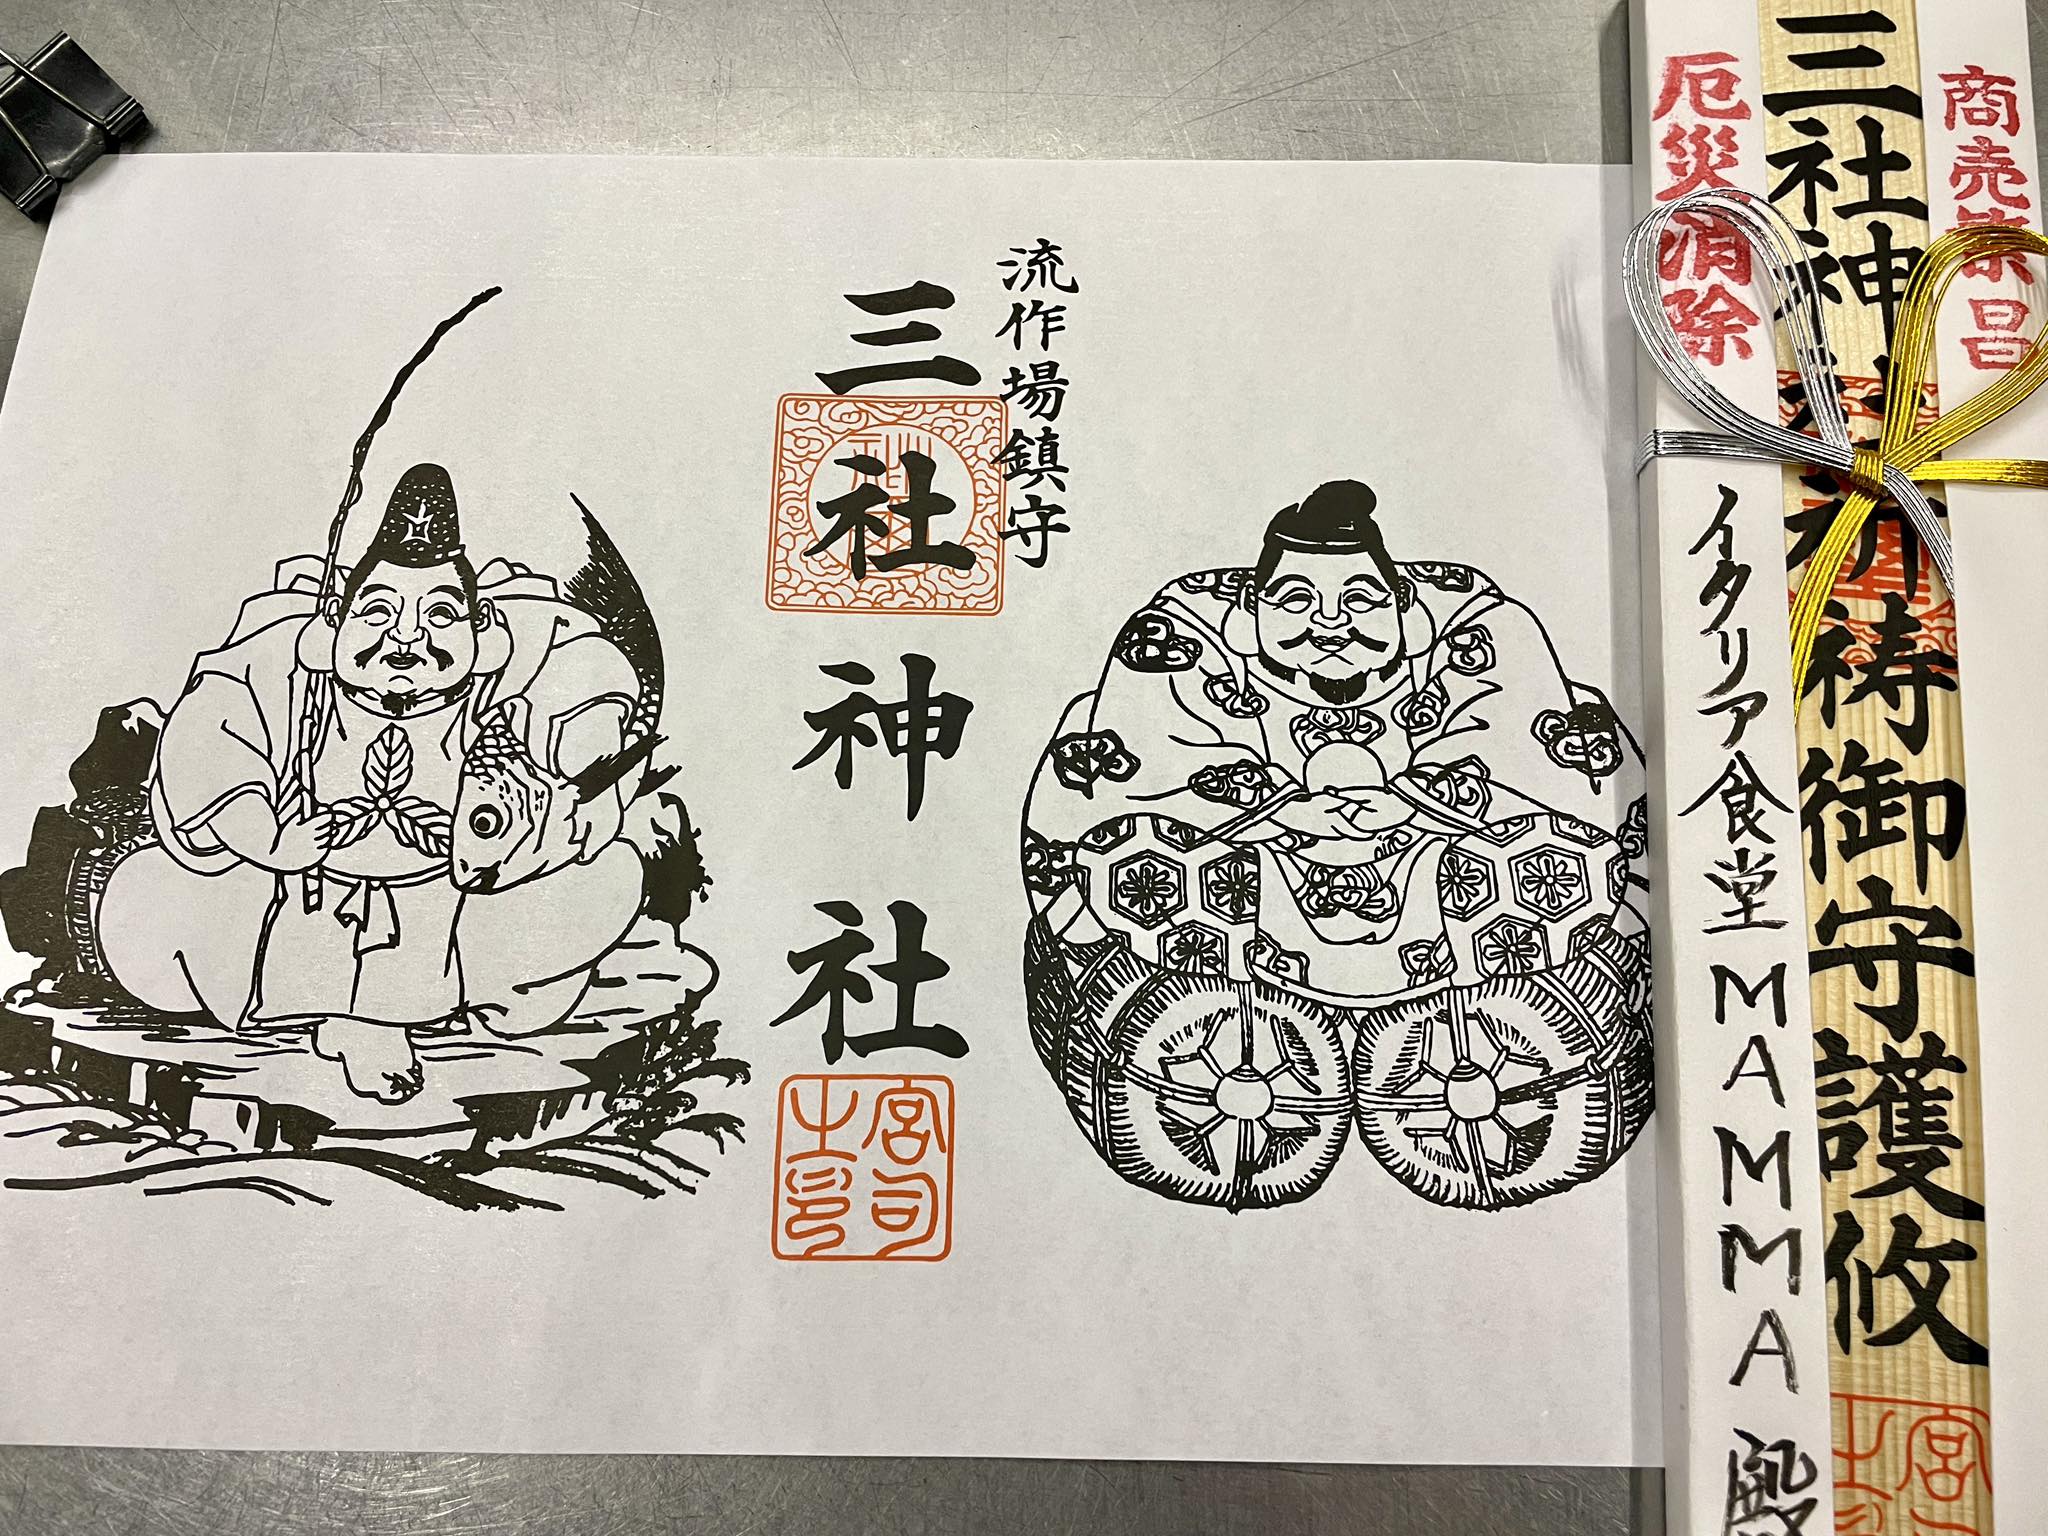 商売繁昌
三社神社祈祷御守護攸
厄災消除
イタリア食堂MAMMA 殿
流作場鎮守
三社神社
宮司之印